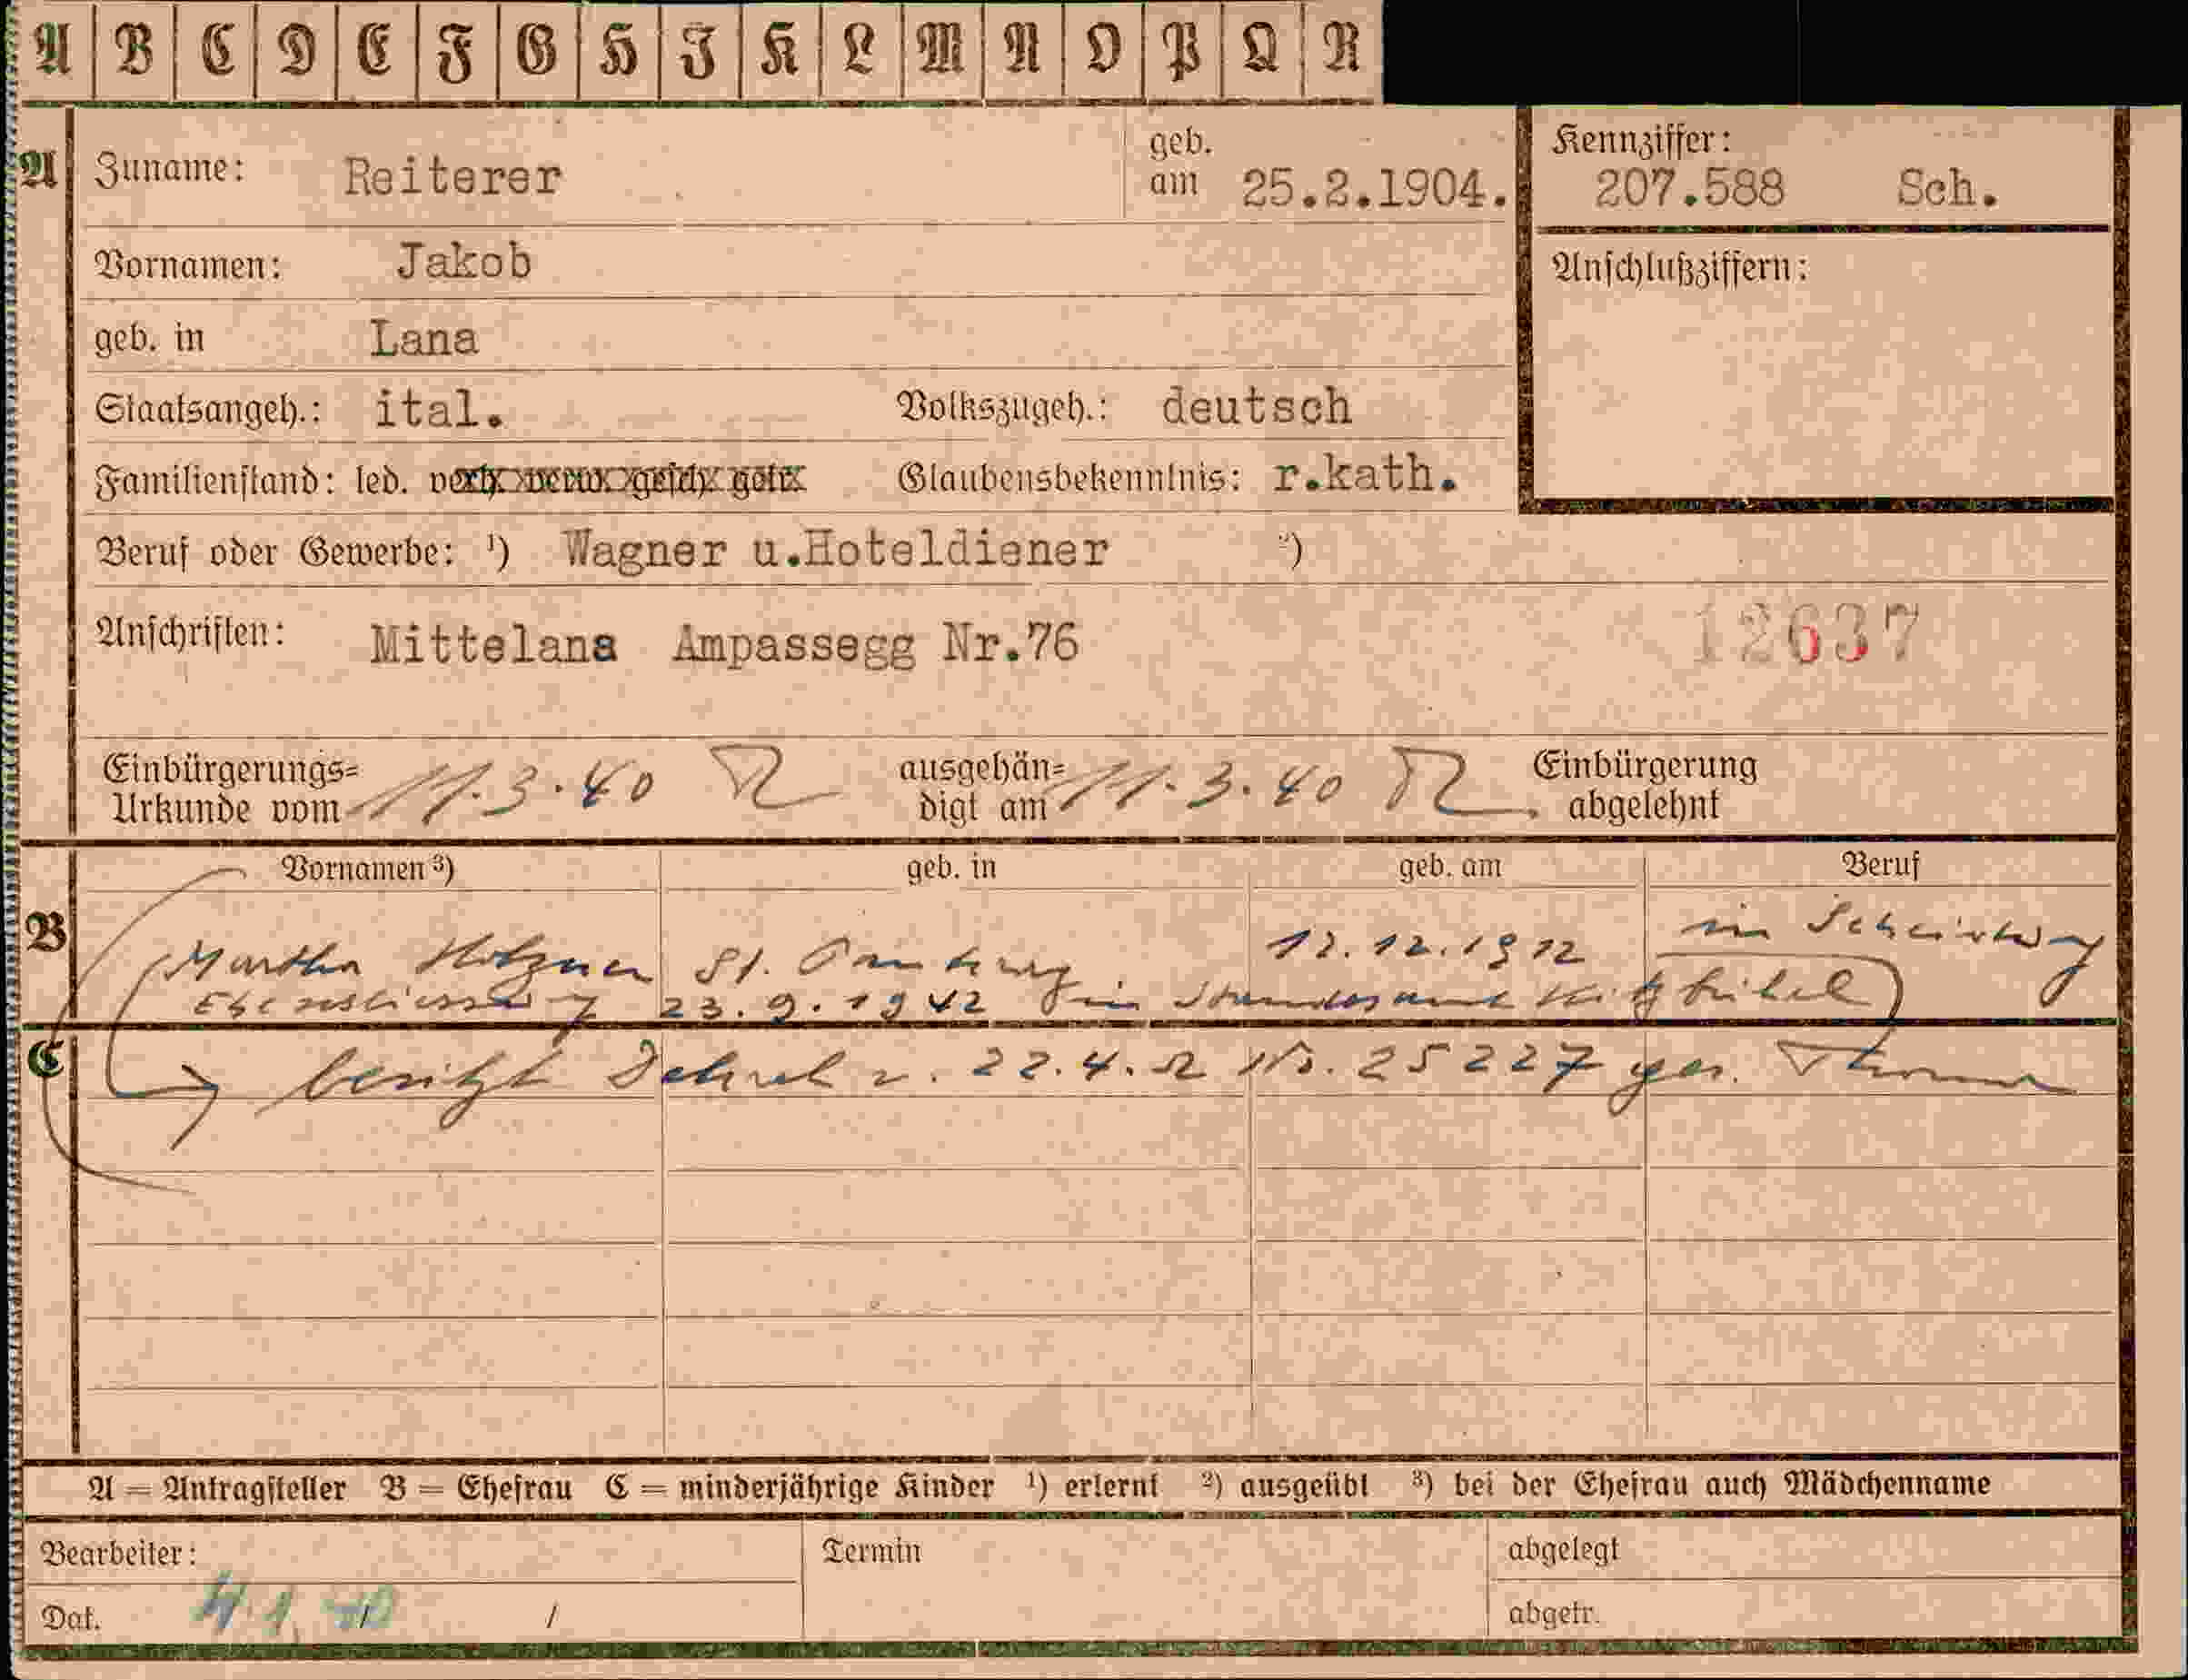 A B C D E F G H J K L M N O P Q R
A Zuname: Reiterer geb. am 25.2.1904. Kennziffer: 207.588 Sch.
Vornamen: Jakob Anschlußziffern:
geb. in Lana
Staatsangeh.: ital. Volkszugeh.: deutsch
Familienstand: led. verh. verw. gesch. getr. Glaubensbekenntnis: r.kath.
Beruf oder Gewerbe: ¹) Wagner u.Hoteldiener ²)
Anschriften: Mittelana Ampassegg Nr.76 12637
Einbürgerungs= ausgehän= Einbürgerung
Urkunde vom 11.3.40 digt am 11.3.40 abgelehnt
Vornamen ³) geb. in geb. am Beruf
B Martha Holzner St. 12.12.1912 in
Eheschliessung 23.9.1942 in Standesamt Kitzbühel
C besitzt v. 22.4. Nr. 25227
A = Antragsteller B = Ehefrau C = minderjährige Kinder ¹) erlernt ²) ausgeübt ³) bei der Ehefrau auch Mädchenname
Bearbeiter: Termin abgelegt
Dat. 4.1.40 / / abgetr.